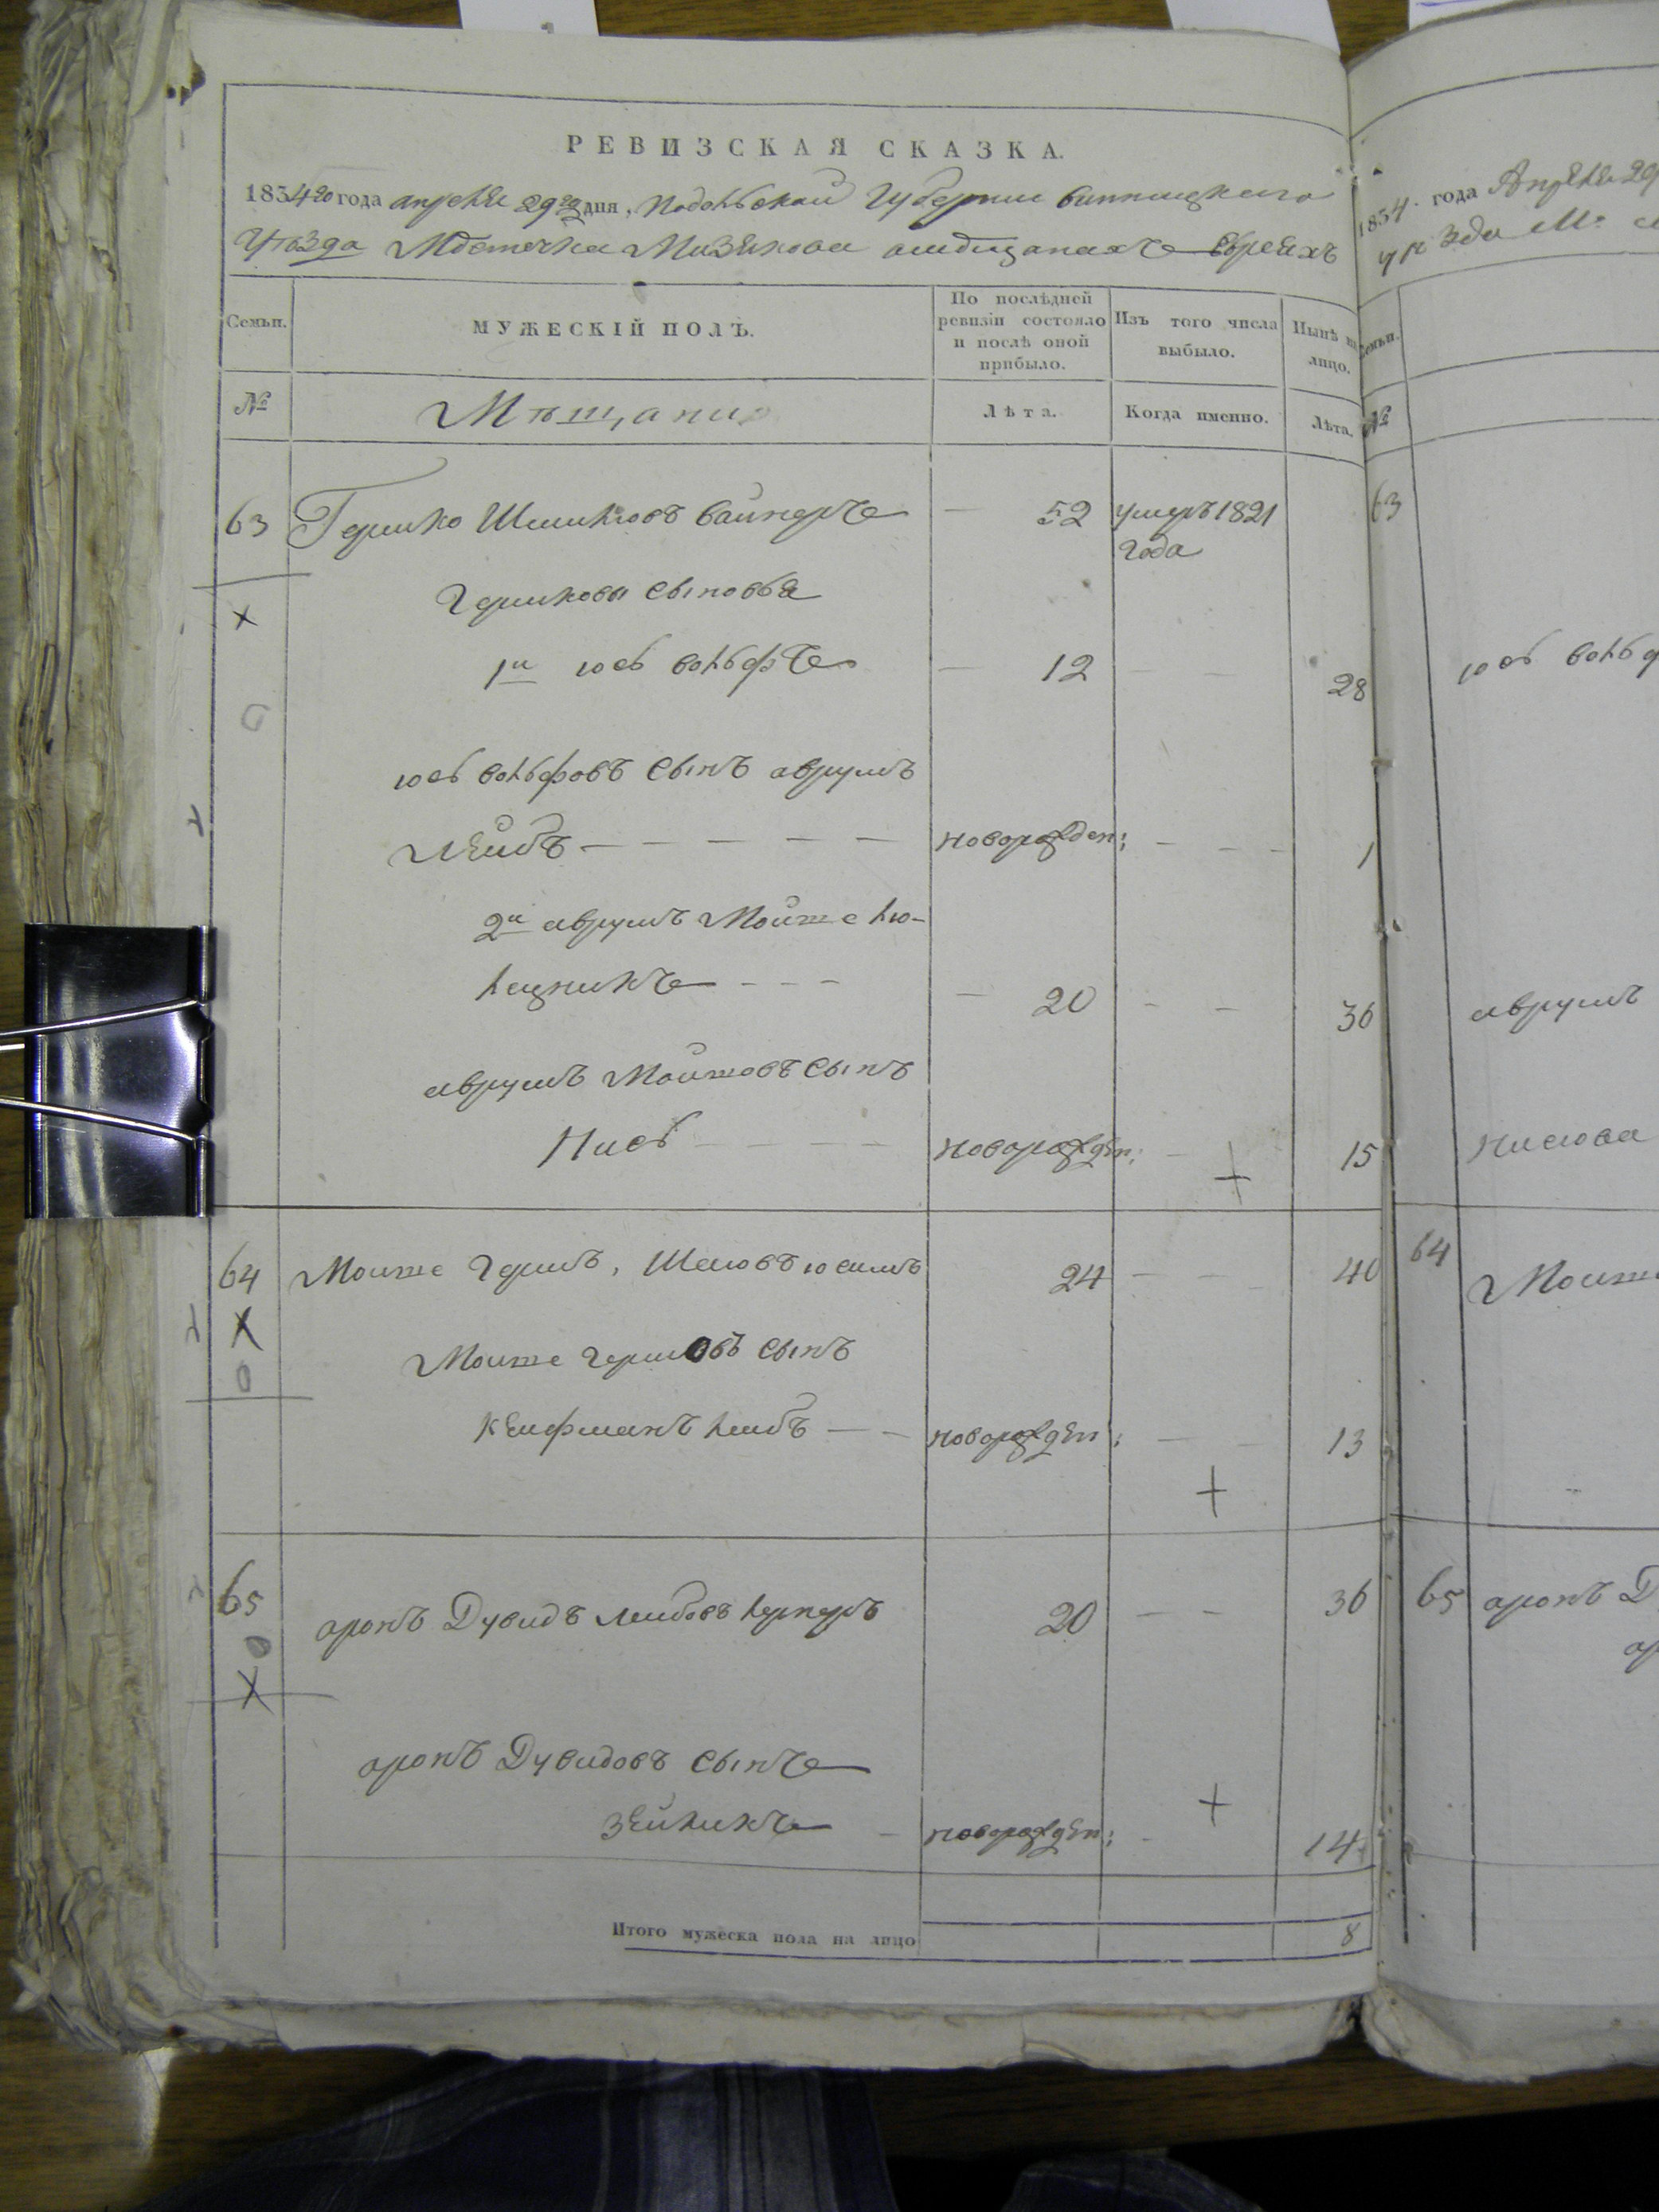 РЕВИЗСКАЯ СКАЗКА.
1834го года апреля 29го дня, Подольской Губернии винницкаго
уѣзда Мѣстечка Мизякова омѣщанахъ Евреяхъ
Семьи.
МУЖЕСКІЙ ПОЛЪ.
По послѣдней ревизіи состояло и послѣ оной прибыло.
Изъ того числа выбыло.
Нынѣ на лицо.
№
Мѣщане
Лѣта.
Когда именно.
Лѣта.
63 Гершко Шмилювъ вайнеръ — 52 умеръ 1821
года
Гершковы сыновья
1й юсь вольфъ — 12 — — 28
юсь вольфовъ сынъ аврумъ
Лейбъ — — — — — новорожден: — — — 1
2й аврумъ Мойше лю-
лецникъ — — — 20 — — 36
аврумъ Мойшовъ сынъ
Нисъ — — — — новорожден: — 15
64 Моише Гершъ, Шаювъ юсимъ 24 — — 40
Моише гершовъ сынъ
Кейфманъ лейбъ — — новорожден: — — 13
65 аронъ Дувидъ лейбовъ лернеръ 20 — — 36
аронъ Дувидовъ сынъ
Зейликъ — новорожден: — 14
Итого мужеска пола на лицо 8
1834. года Апреля 29
уѣзда Мѣ
Семьи.
№
63
юсь вольф
аврумъ
нисюва
64
Моише
65 аронъ Д
ар